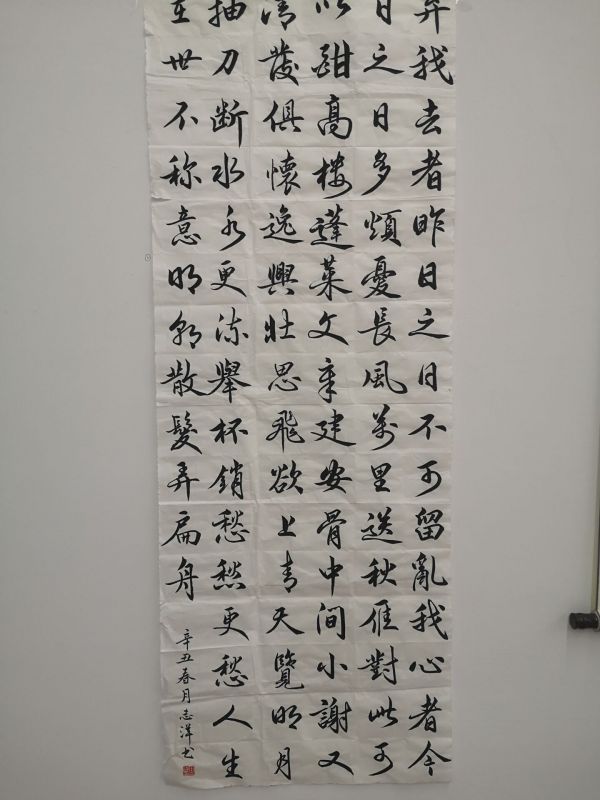 弃我去者昨日之日不可留亂我心者今
日之日多煩憂長風萬里送秋雁對此可
以酣高樓蓬萊文章建安骨中間小謝又
清發俱懷逸興壯思飛欲上青天覽明月
抽刀断水水更流舉杯銷愁愁更愁人生
在世不称意明朝散髮弄扁舟
辛丑春月志洋书